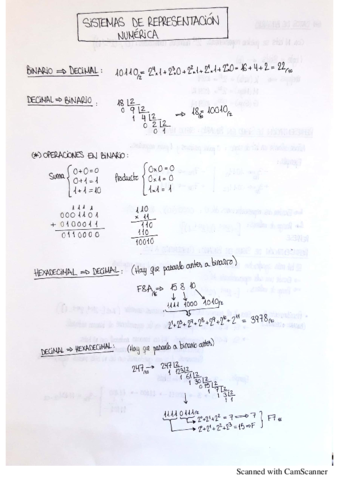 SISTEMAS DE REPRESENTACIÓN
NUMÉRICA
BINARIO ⇒ DECIMAL: 10110/2 = 2⁴·1 + 2³·0 + 2²·1 + 2¹·1 + 2⁰·0 = 16+4+2 = 22/10
DECIMAL ⇒ BINARIO:
18 |2
0 9 |2
1 4 |2 ⇒ 18/10 = 10010/2
0 2 |2
0 1
(*) OPERACIONES EN BINARIO:
Suma { 0+0=0 Producto { 0x0=0
0+1=1 0x1=0
1+1=10 1x1=1
1111
0001101
+ 0100011
0110000
110
x 11
110
110
10010
HEXADECIMAL ⇒ DECIMAL: (Hay que pasarlo antes a binario)
F8A/16 → 15 8 10
1111 1000 1010/2
= 3978/10
DECIMAL ⇒ HEXADECIMAL: (Hay que pasarlo a binario antes)
247/10 → 247 |2
1 123 |2
1 61 |2
1 30 |2
0 15 |2
1 7 |2
1 3 |2
1 1
1111 0111/2
2⁰+2¹+2² = 7 ⇒ 7
2⁰+2¹+2²+2³ = 15 ⇒ F
F7/16
Scanned with CamScanner